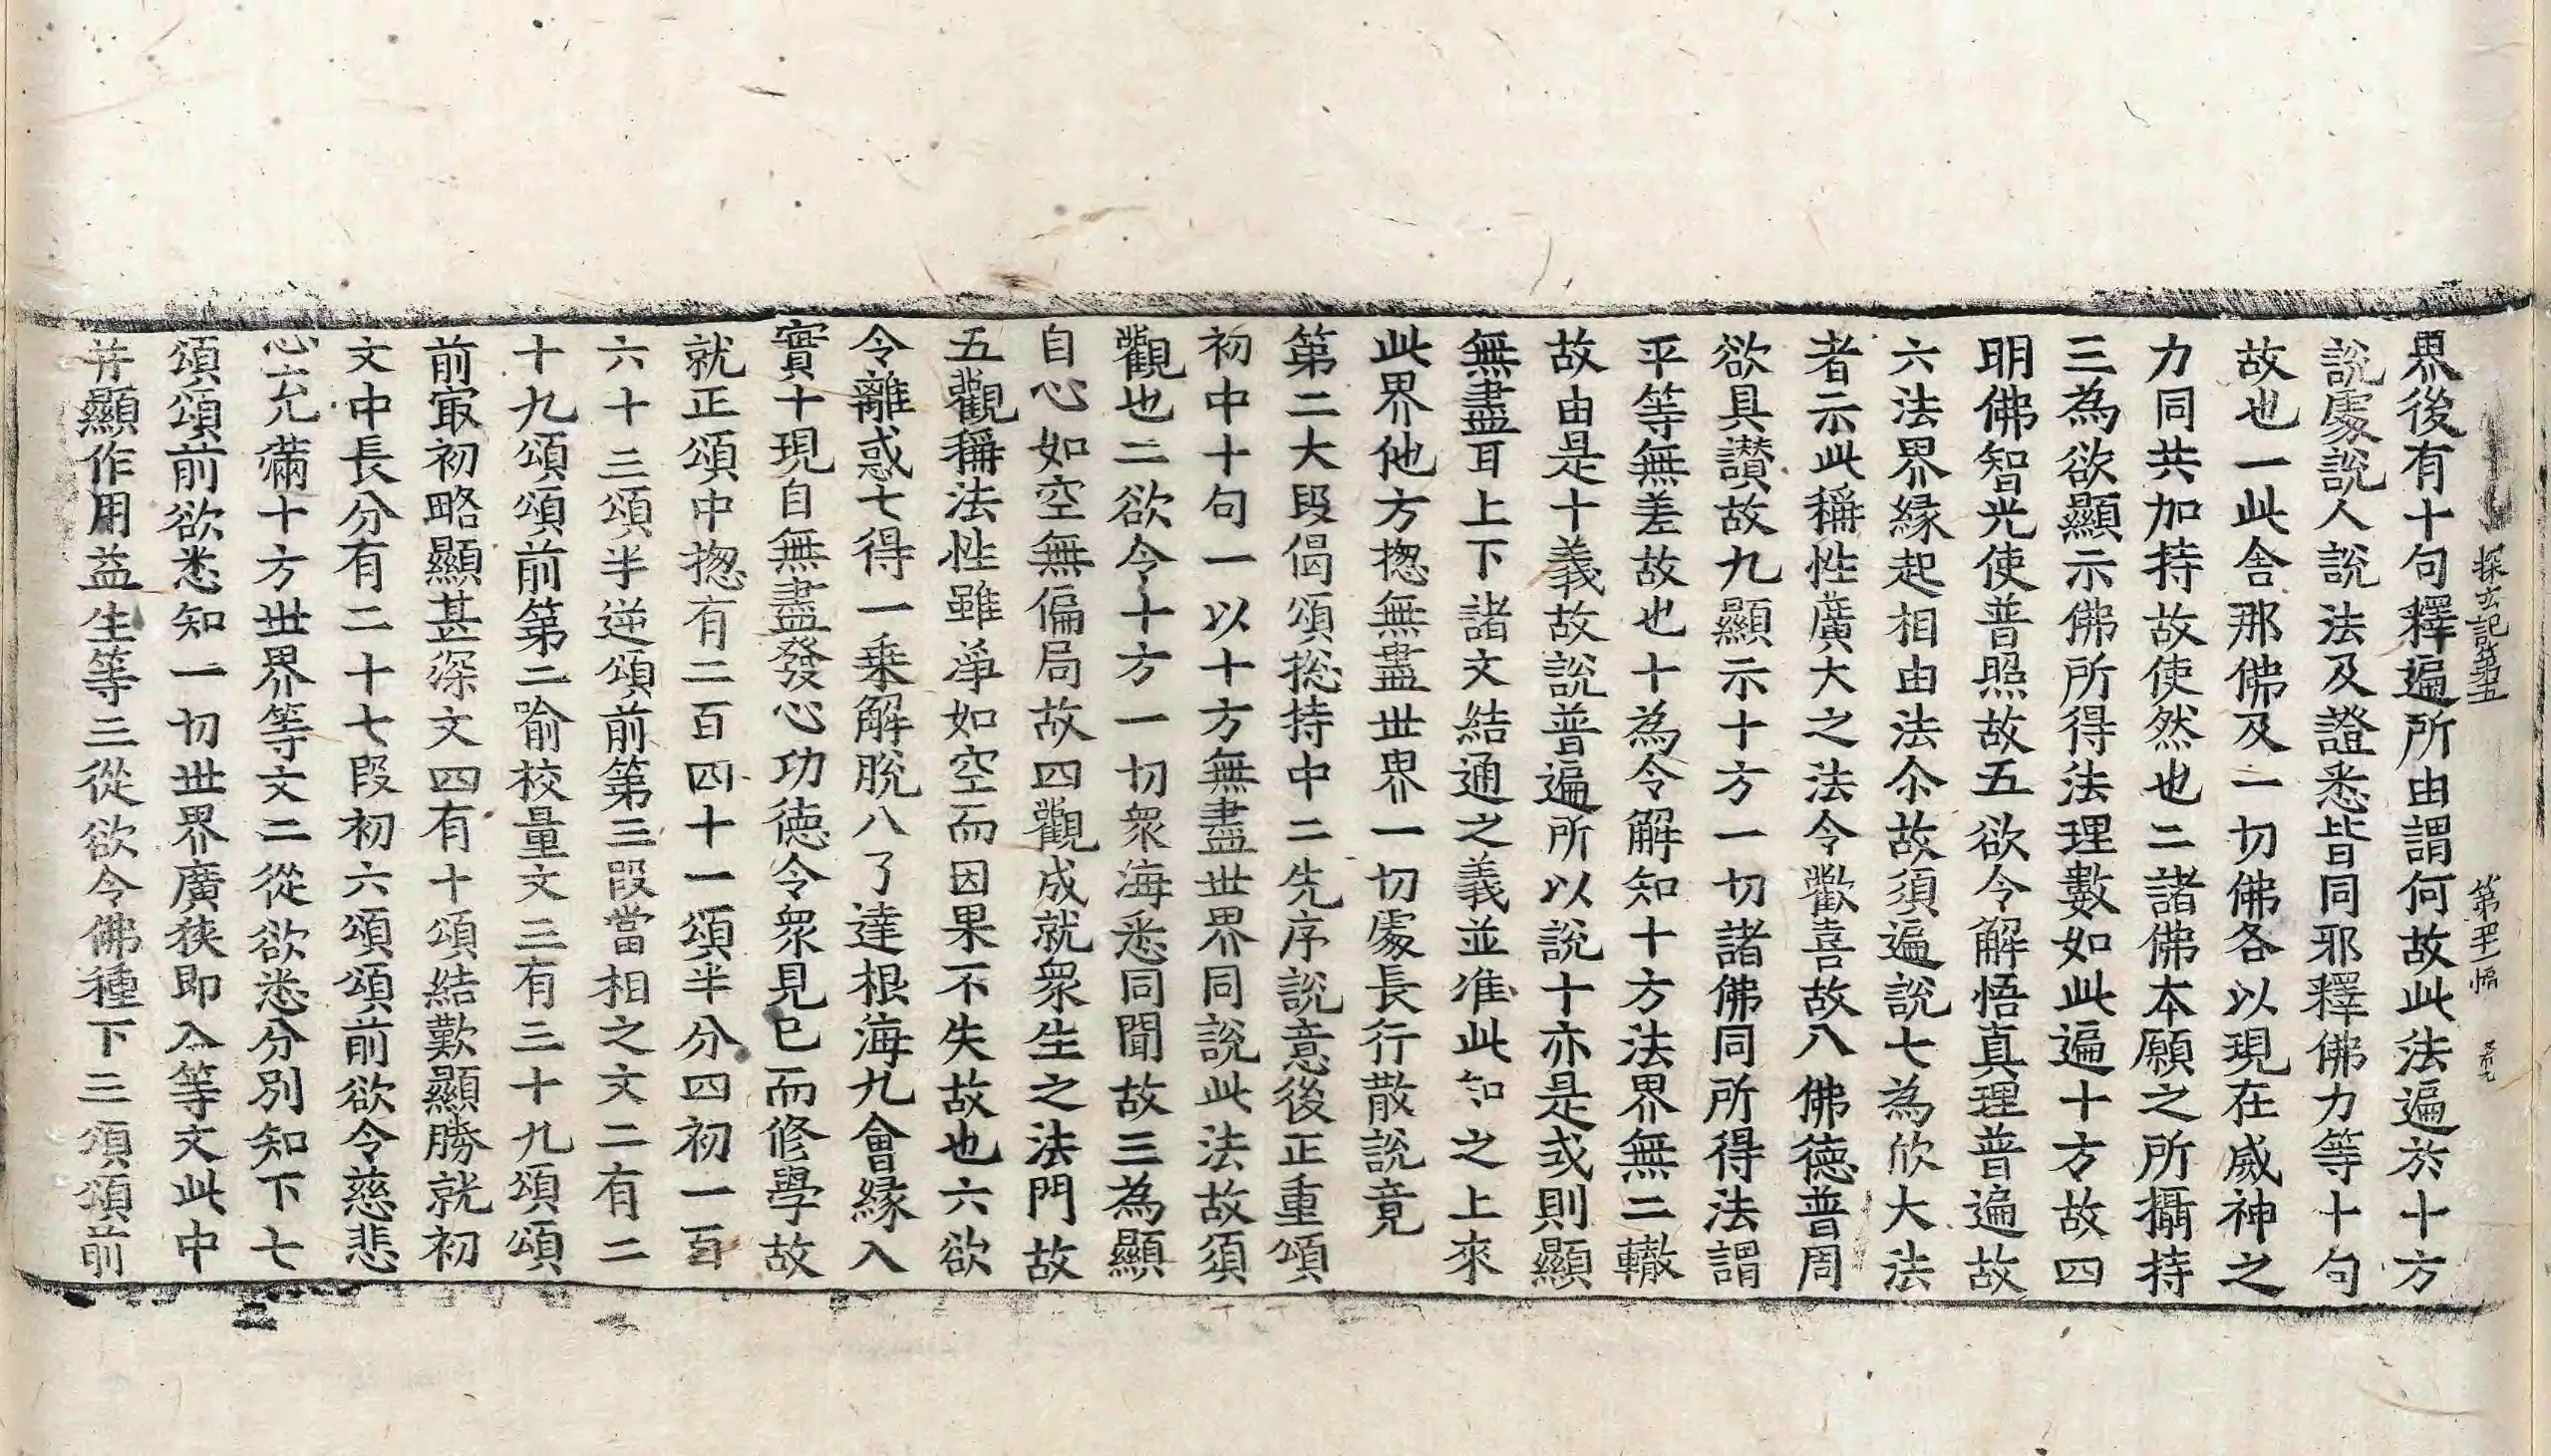 探玄記第五 第四十二幅
界後有十句釋遍所由謂何故此法遍於十方
說處說人說法及證悉皆同邪釋佛力等十句
故也一此舍那佛及一切佛各以現在威神之
力同共加持故使然也二諸佛本願之所攝持
三為欲顯示佛所得法理數如此遍十方故四
明佛智光使普照故五欲令解悟真理普遍故
六法界緣起相由法尒故須遍說七為欣大法
者示此稱性廣大之法令歡喜故八佛德普周
欲具讚故九顯示十方一切諸佛同所得法謂
平等無差故也十為令解知十方法界無二轍
故由是十義故說普遍所以說十亦是或則顯
無盡耳上下諸文結通之義並准此知之上來
此界他方揔無盡世界一切處長行散說竟
第二大段偈頌揔持中二先序說意後正重頌
初中十句一以十方無盡世界同說此法故須
觀也二欲令十方一切眾海悉同聞故三為顯
自心如空無偏局故四觀成就眾生之法門故
五觀稱法性雖淨如空而因果不失故也六欲
令離惑七得一乗解脫八了達根海九會緣入
實十現自無盡發心功德令眾見已而修學故
就正頌中揔有二百四十一頌半分四初一百
六十三頌半逆頌前第三段當相之文二有二
十九頌頌前第二喻校量文三有三十九頌頌
前㝡初略顯甚深文四有十頌結歎顯勝就初
文中長分有二十七段初六頌頌前欲令慈悲
悉充滿十方世界等文二從欲悉分別知下七
頌頌前欲悉知一切世界廣狹即入等文此中
并顯作用益生等三從欲令佛種下三頌頌前